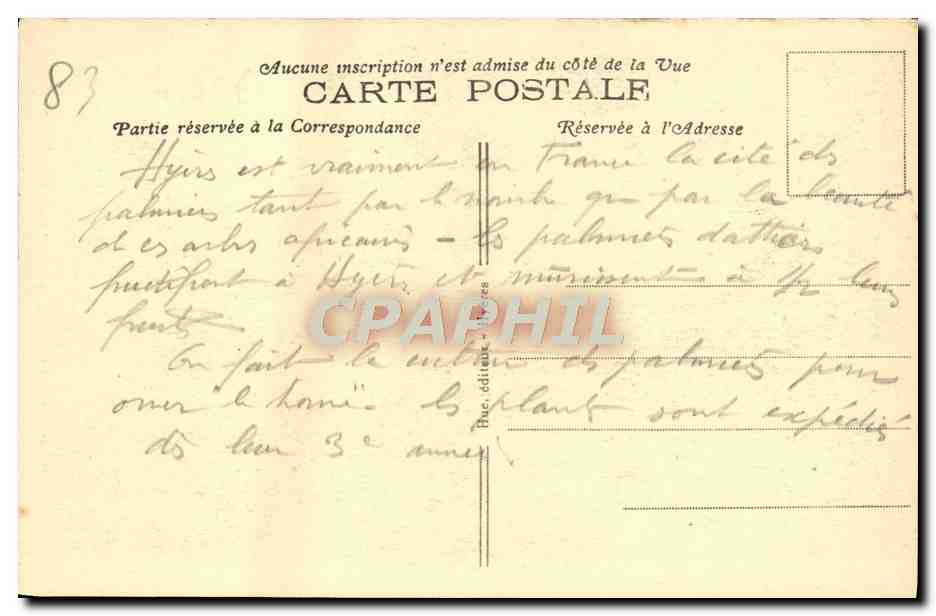 83
Aucune inscription n'est admise du côté de la Vue
CARTE POSTALE
Partie réservée à la Correspondance
Réservée à l'Adresse
Hyères est vraiment en France la cité des
palmiers tant par le nombre que par la beauté
de ces arbres africains - les palmiers dattiers
fructifient à Hyères et mûrissent à 1/2 leurs
fruits
On fait la culture des palmiers pour
orner le home. les plants sont expédiés
dès leur 3e année
Huc, éditeur - Hyères
CPAPHIL